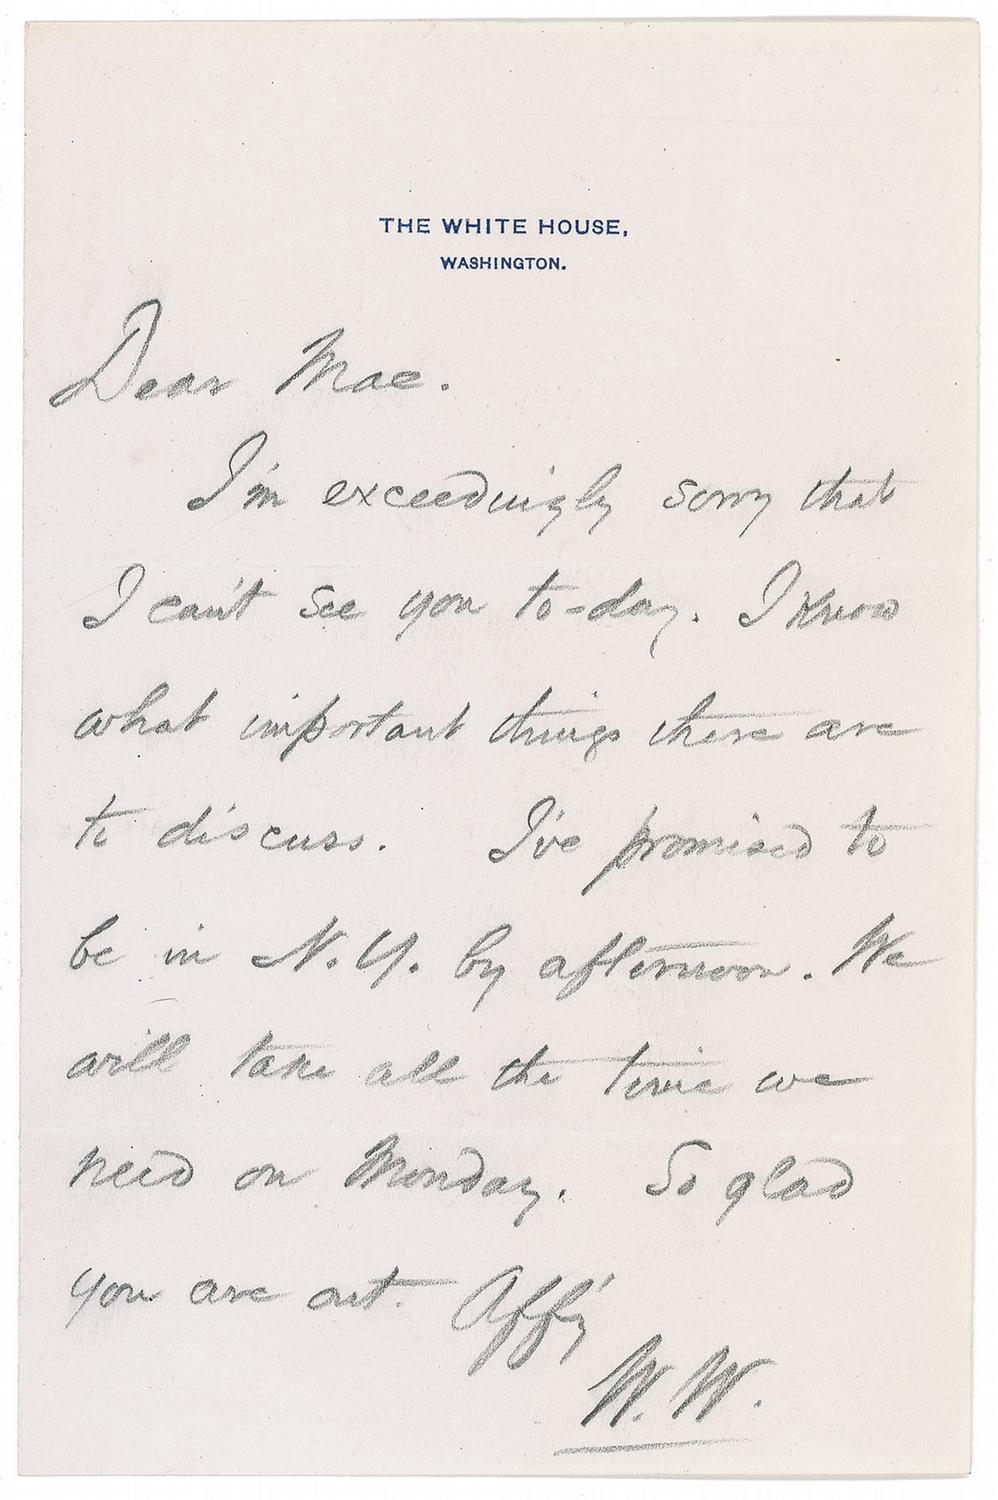 THE WHITE HOUSE,
WASHINGTON.
Dear Mac.
I'm exceedingly sorry that
I can't see you to-day. I know
what important things there are
to discuss. I've promised to
be in N.Y. by afternoon. We
will take all the time we
need on Monday. So glad
you are out. Aff'y
W.W.